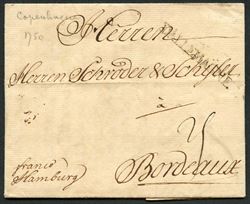 Copenhagen
1750
Herren
Herren Schröder & Schyler
à
franco
Hamburg
Bordeaux